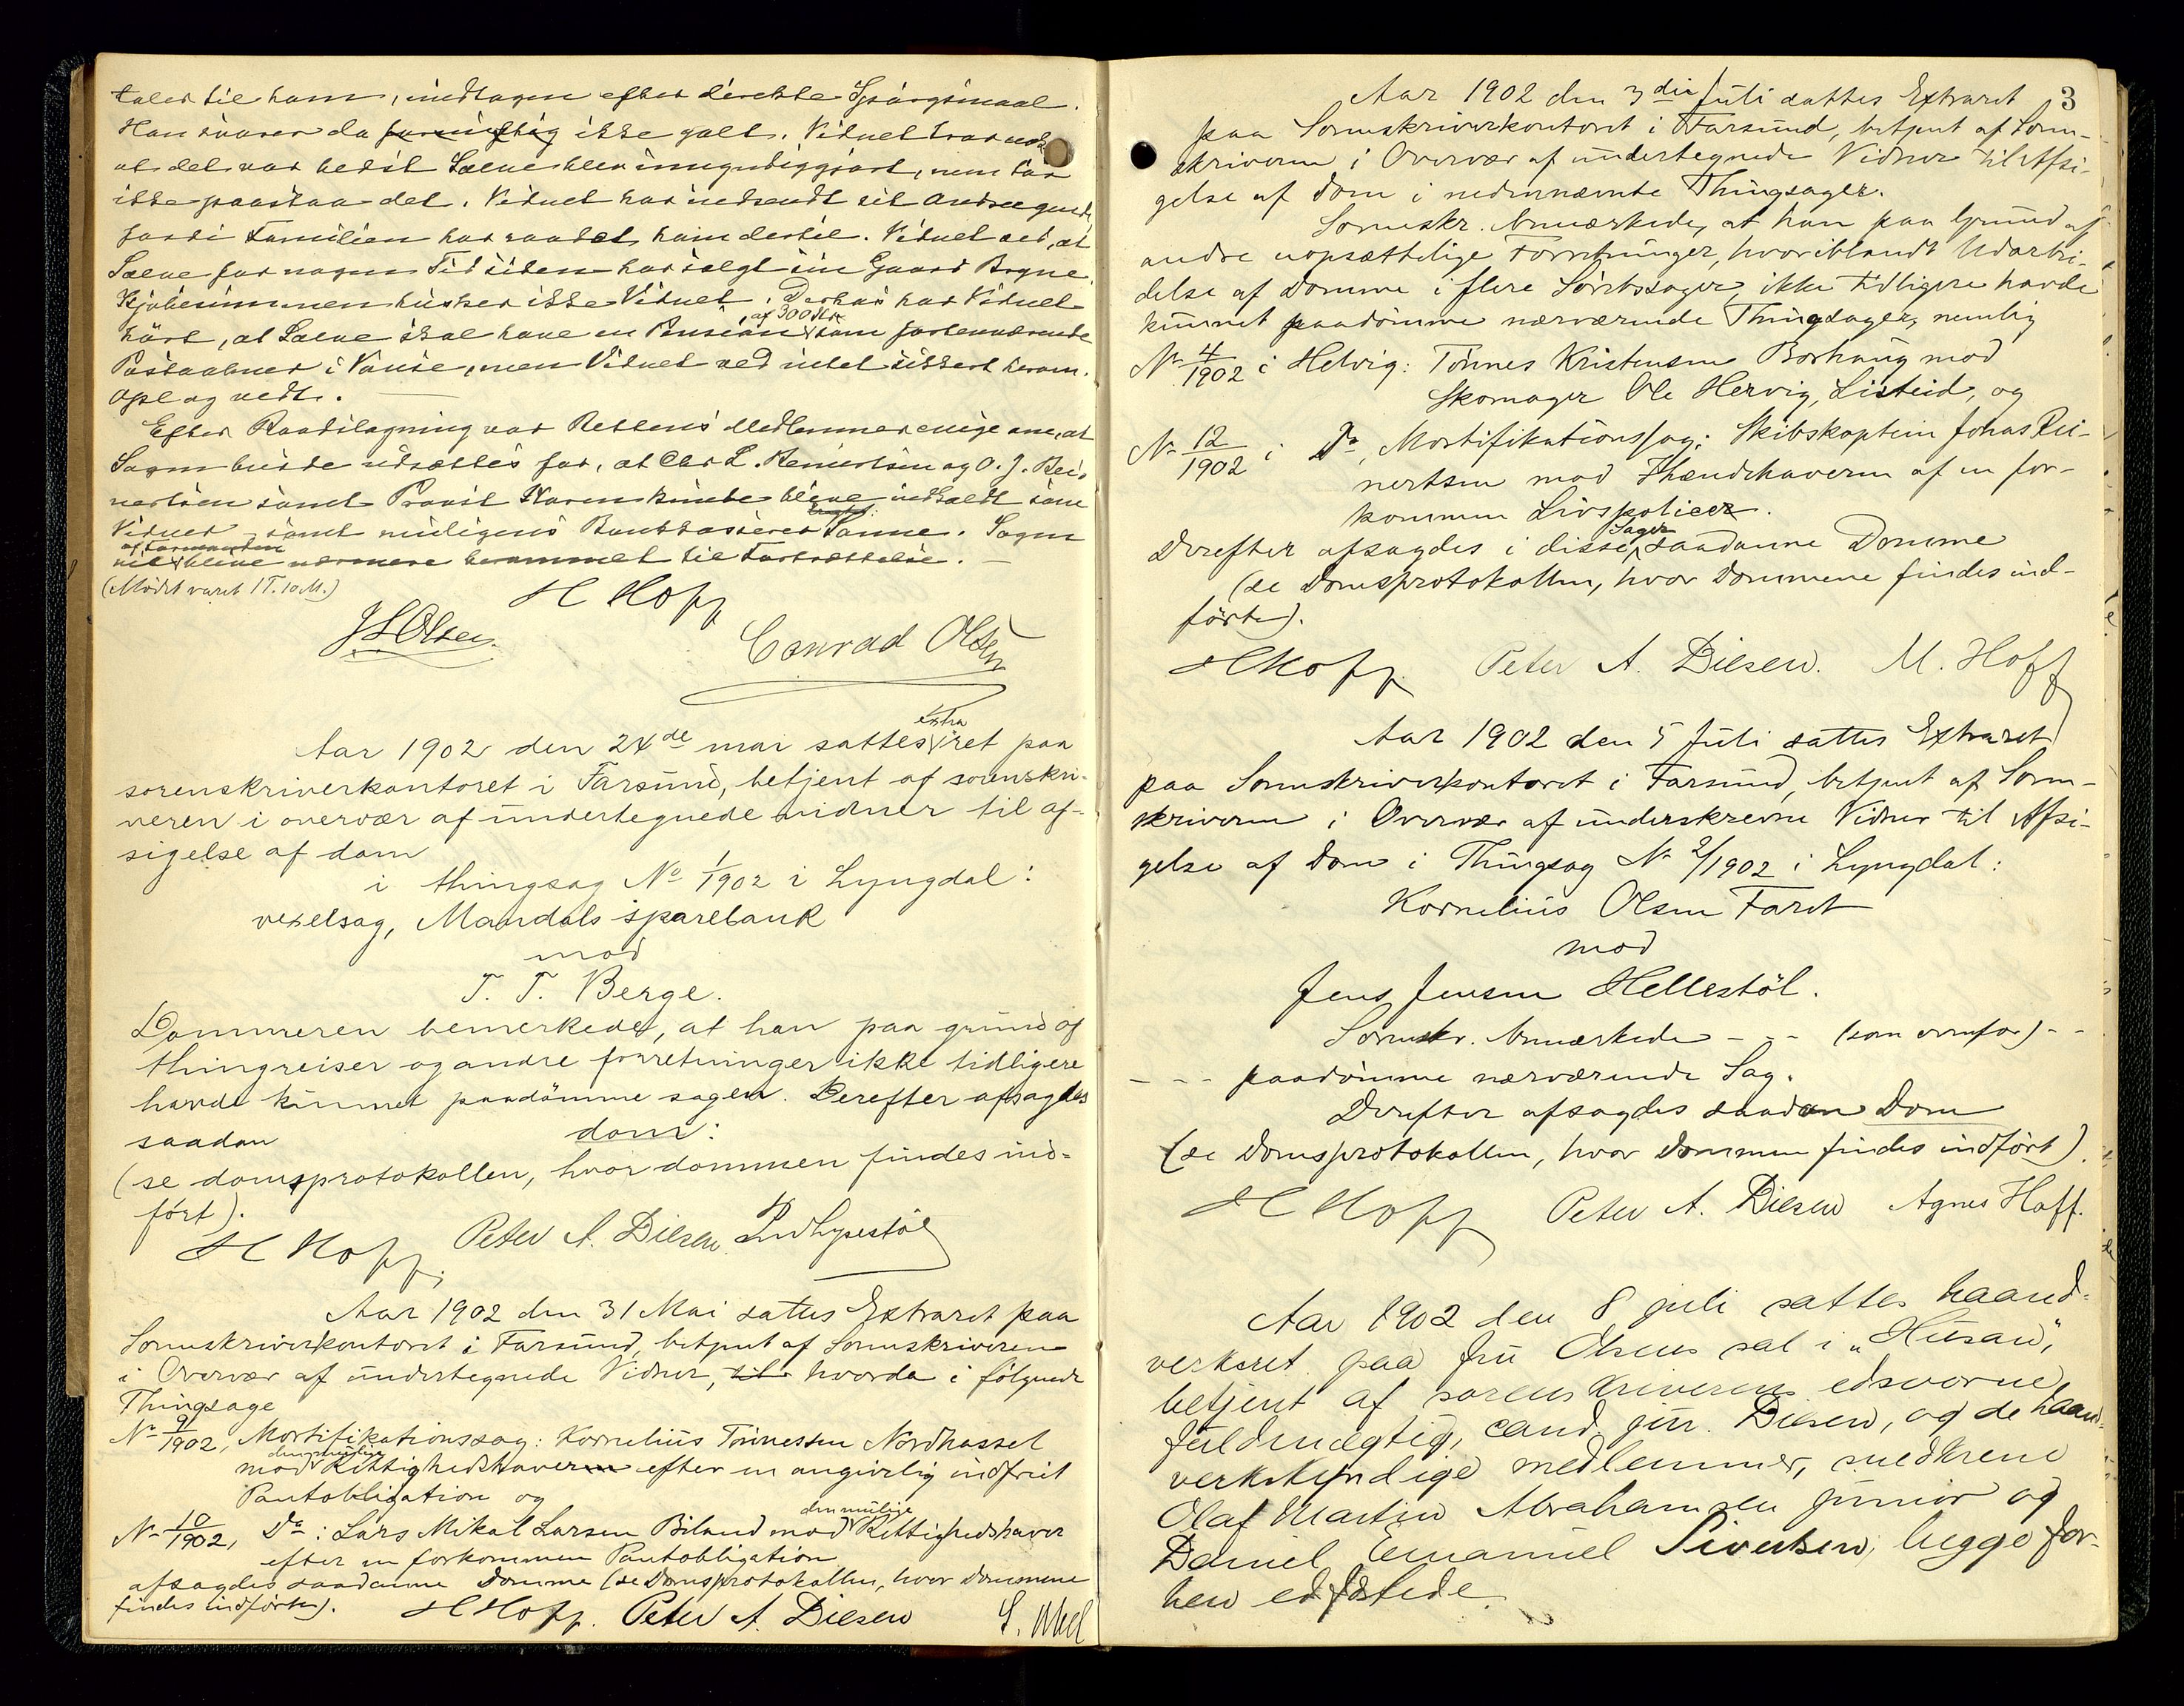 taler til ham, undtagen efter direkte Spørgsmaal.
Han svarer da fornuftig ikke galt. Vidnet tror nok
at det var bedst Salve blev umyndiggjort, men tør
ikke paastaa det. Vidnet har indsendt sit Andragende
fordi Familien har raadet ham dertil. Vidnet ved, at
Salve for nogen Tid siden har solgt sin Gaard Brgne
Kjøbesummen husker ikke Vidnet. Derhos har Vidnet
hørt, at Salve skal have en Pension af 300 Kr som forhenværende
Postaabner i Vanse, men Vidnet ved intet sikkert herom.
Opl og vedt.
Efter Raadslagning var Rettens Medlemmer enige om, at
Sagen burde udsættes for, at Chr L. Reinertsen og O. J. Rei-
nertsen samt Provst blive indkaldt som
Vidner, samt muligens Bankkasserer Sanne. Sagen
vil af Formanden blive nærmere berammet til Fortsættelse.
(Mødet varet 1 T. 10 M.)
H Hoff
J S Olsen. Conrad Olsen
Aar 1902 den 24de mai sattes extra ret paa
sorenskriverkontoret i Farsund, betjent af sorenskri-
veren i overvær af undertegnede vidner til af-
sigelse af dom
i thingsag No 1/1902 i Lyngdal:
vexelsag, Mandals sparebank
mod
T. T. Berge.
Dommeren bemerkede, at han paa grund af
thingreiser og andre forretninger ikke tidligere
havde kunnet paadømme sagen. Derefter afsagdes
saadan dom:
(se domsprotokollen, hvor dommen findes ind-
ført).
H Hoff. Peter A. Diesen.
Aar 1902 den 31 Mai sattes Extraret paa
Sorenskriverkontoret i Farsund, betjent af Sorenskriveren
i Overvær af undertegnede Vidner, til hvorda i følgende
Thingsage
No 9/1902, Mortifikationssag: Kornelius Tønnessen Nordhassel
mod den mulige Rettighedshaveren efter en angivelig indfriet
Pantobligation og
No 10/1902, Do: Lars Mikal Larsen Biland mod den mulige Rettighedshaver
efter en forkommen Pantobligation
afsagdes saadanne Domme (se Domsprotokollen, hvor Dommene
findes indførte). H Hoff. Peter A. Diesen
3
Aar 1902 den 3die Juli sattes Extraret
paa Sorenskriverkontoret i Farsund, betjent af Soren-
skriveren i Overvær af undertegnede Vidner til Afsi-
gelse af Dom i nedennævnte Thingsager.
Sorenskr. bemærkede, at han paa Grund af
andre uopsættelige Forretninger, hvoriblandt Udarbei-
delse af Domme i flere Søretssager, ikke tidligere havde
kunnet paadømme nærværende Thingsager, nemlig
No 4/1902 i Helvig: Tønnes Kristensen Borhaug mod
Skomager Ole Hervig, Listeid, og
No 12/1902 i Do, Mortifikationssag: Skibskaptein Jonas Rei-
nertsen mod Ihændehaveren af en for-
kommen Livspolicer.
Derefter afsagdes i disse Sager saadanne Domme
(se Domsprotokollen, hvor Dommene findes ind-
førte).
H Hoff. Peter A. Diesen. M. Hoff
Aar 1902 den 5 Juli sattes Extraret
paa Sorenskriverkontoret i Farsund, betjent af Soren-
skriveren i Overvær af underskrevne Vidner til Afsi-
gelse af Dom i Thingsag No 2/1902 i Lyngdal:
Kornelius Olsen Faret
mod
Jens Jensen Hellestøl.
Sorenskr. bemærkede - - - (som ovenfor) - -
- - - paadømme nærværende Sag.
Derefter afsagdes saadan Dom
(se Domsprotokollen, hvor Dommen findes indført).
H Hoff Peter A. Diesen Agnes Hoff.
Aar 1902 den 8 juli sattes haand-
verksret paa fru Olsens sal i "Husan",
betjent af sorenskriverens edsvorne
fuldmægtig, cand. jur. Diesen, og de haand-
verkskyndige medlemmer, smedkene
Olaf Martin Abrahamsen junior og
Daniel Emanuel Sivertsen, begge for-
hen edfæstede.